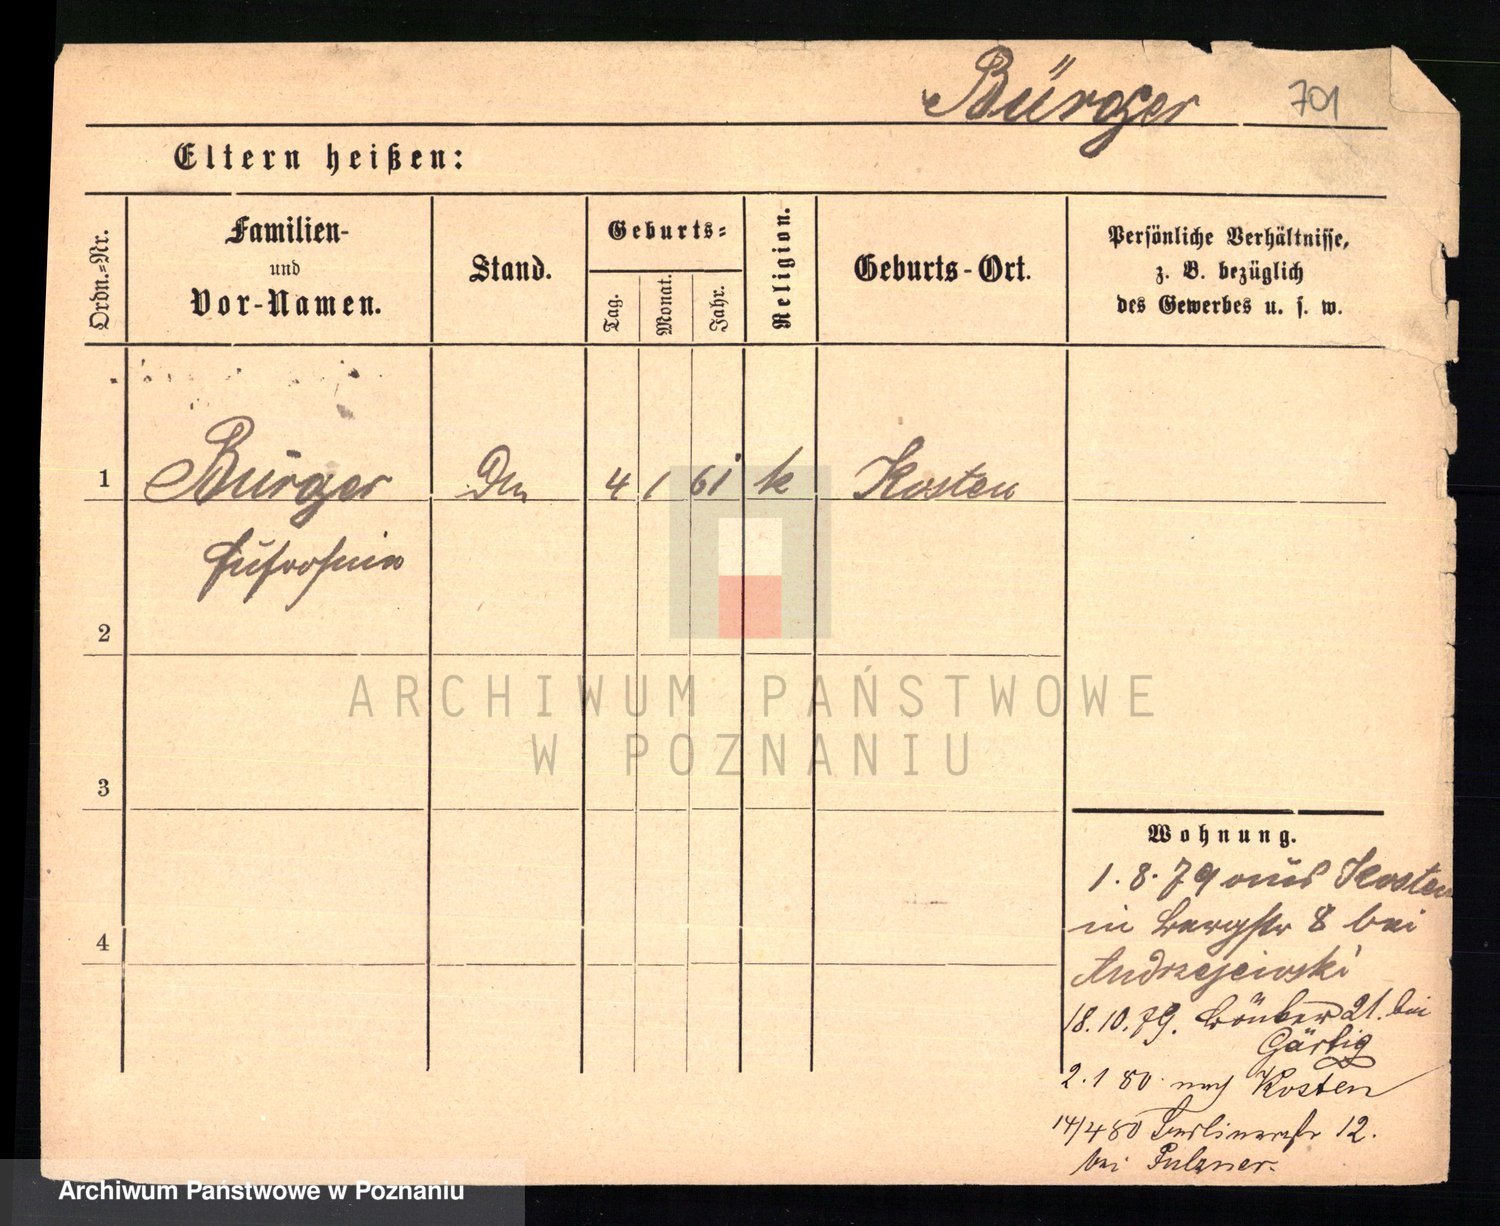 Bürger 701
Eltern heißen:
Ordn.=Nr.
Familien-
und
Vor-Namen.
Stand.
Geburts=
Tag.
Monat.
Jahr.
Religion.
Geburts-Ort.
Persönliche Verhältnisse,
z. B. bezüglich
des Gewerbes u. s. w.
1 Bürger 4 1 61 k Kosten
Eufrosina
2
3
4
Wohnung.
1. 8. 79 aus Kosten
in Bergstr 8 bei
Andrzejewski
18. 10. 79. 21. bei
Gärtig
2. 1 80 nach Kosten
14/4 80 Berlinerstr 12.
bei Pulzner.
ARCHIWUM PAŃSTWOWE
W POZNANIU
Archiwum Państwowe w Poznaniu